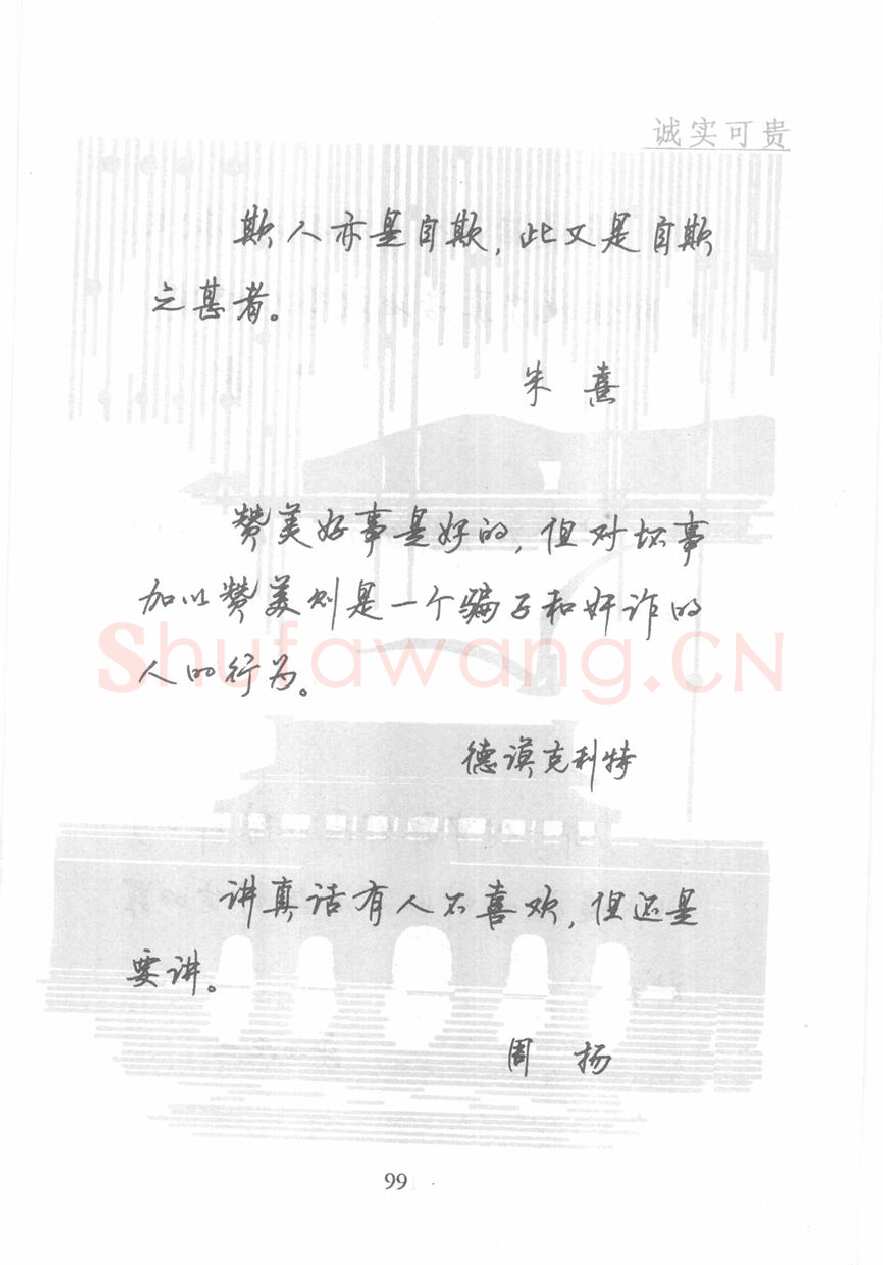 诚实可贵
欺人亦是自欺，此又是自欺
之甚者。
朱熹
赞美好事是好的，但对坏事
加以赞美则是一个骗子和奸诈的
人的行为。
Shufawang.CN
德谟克利特
讲真话有人不喜欢，但还是
要讲。
周扬
99